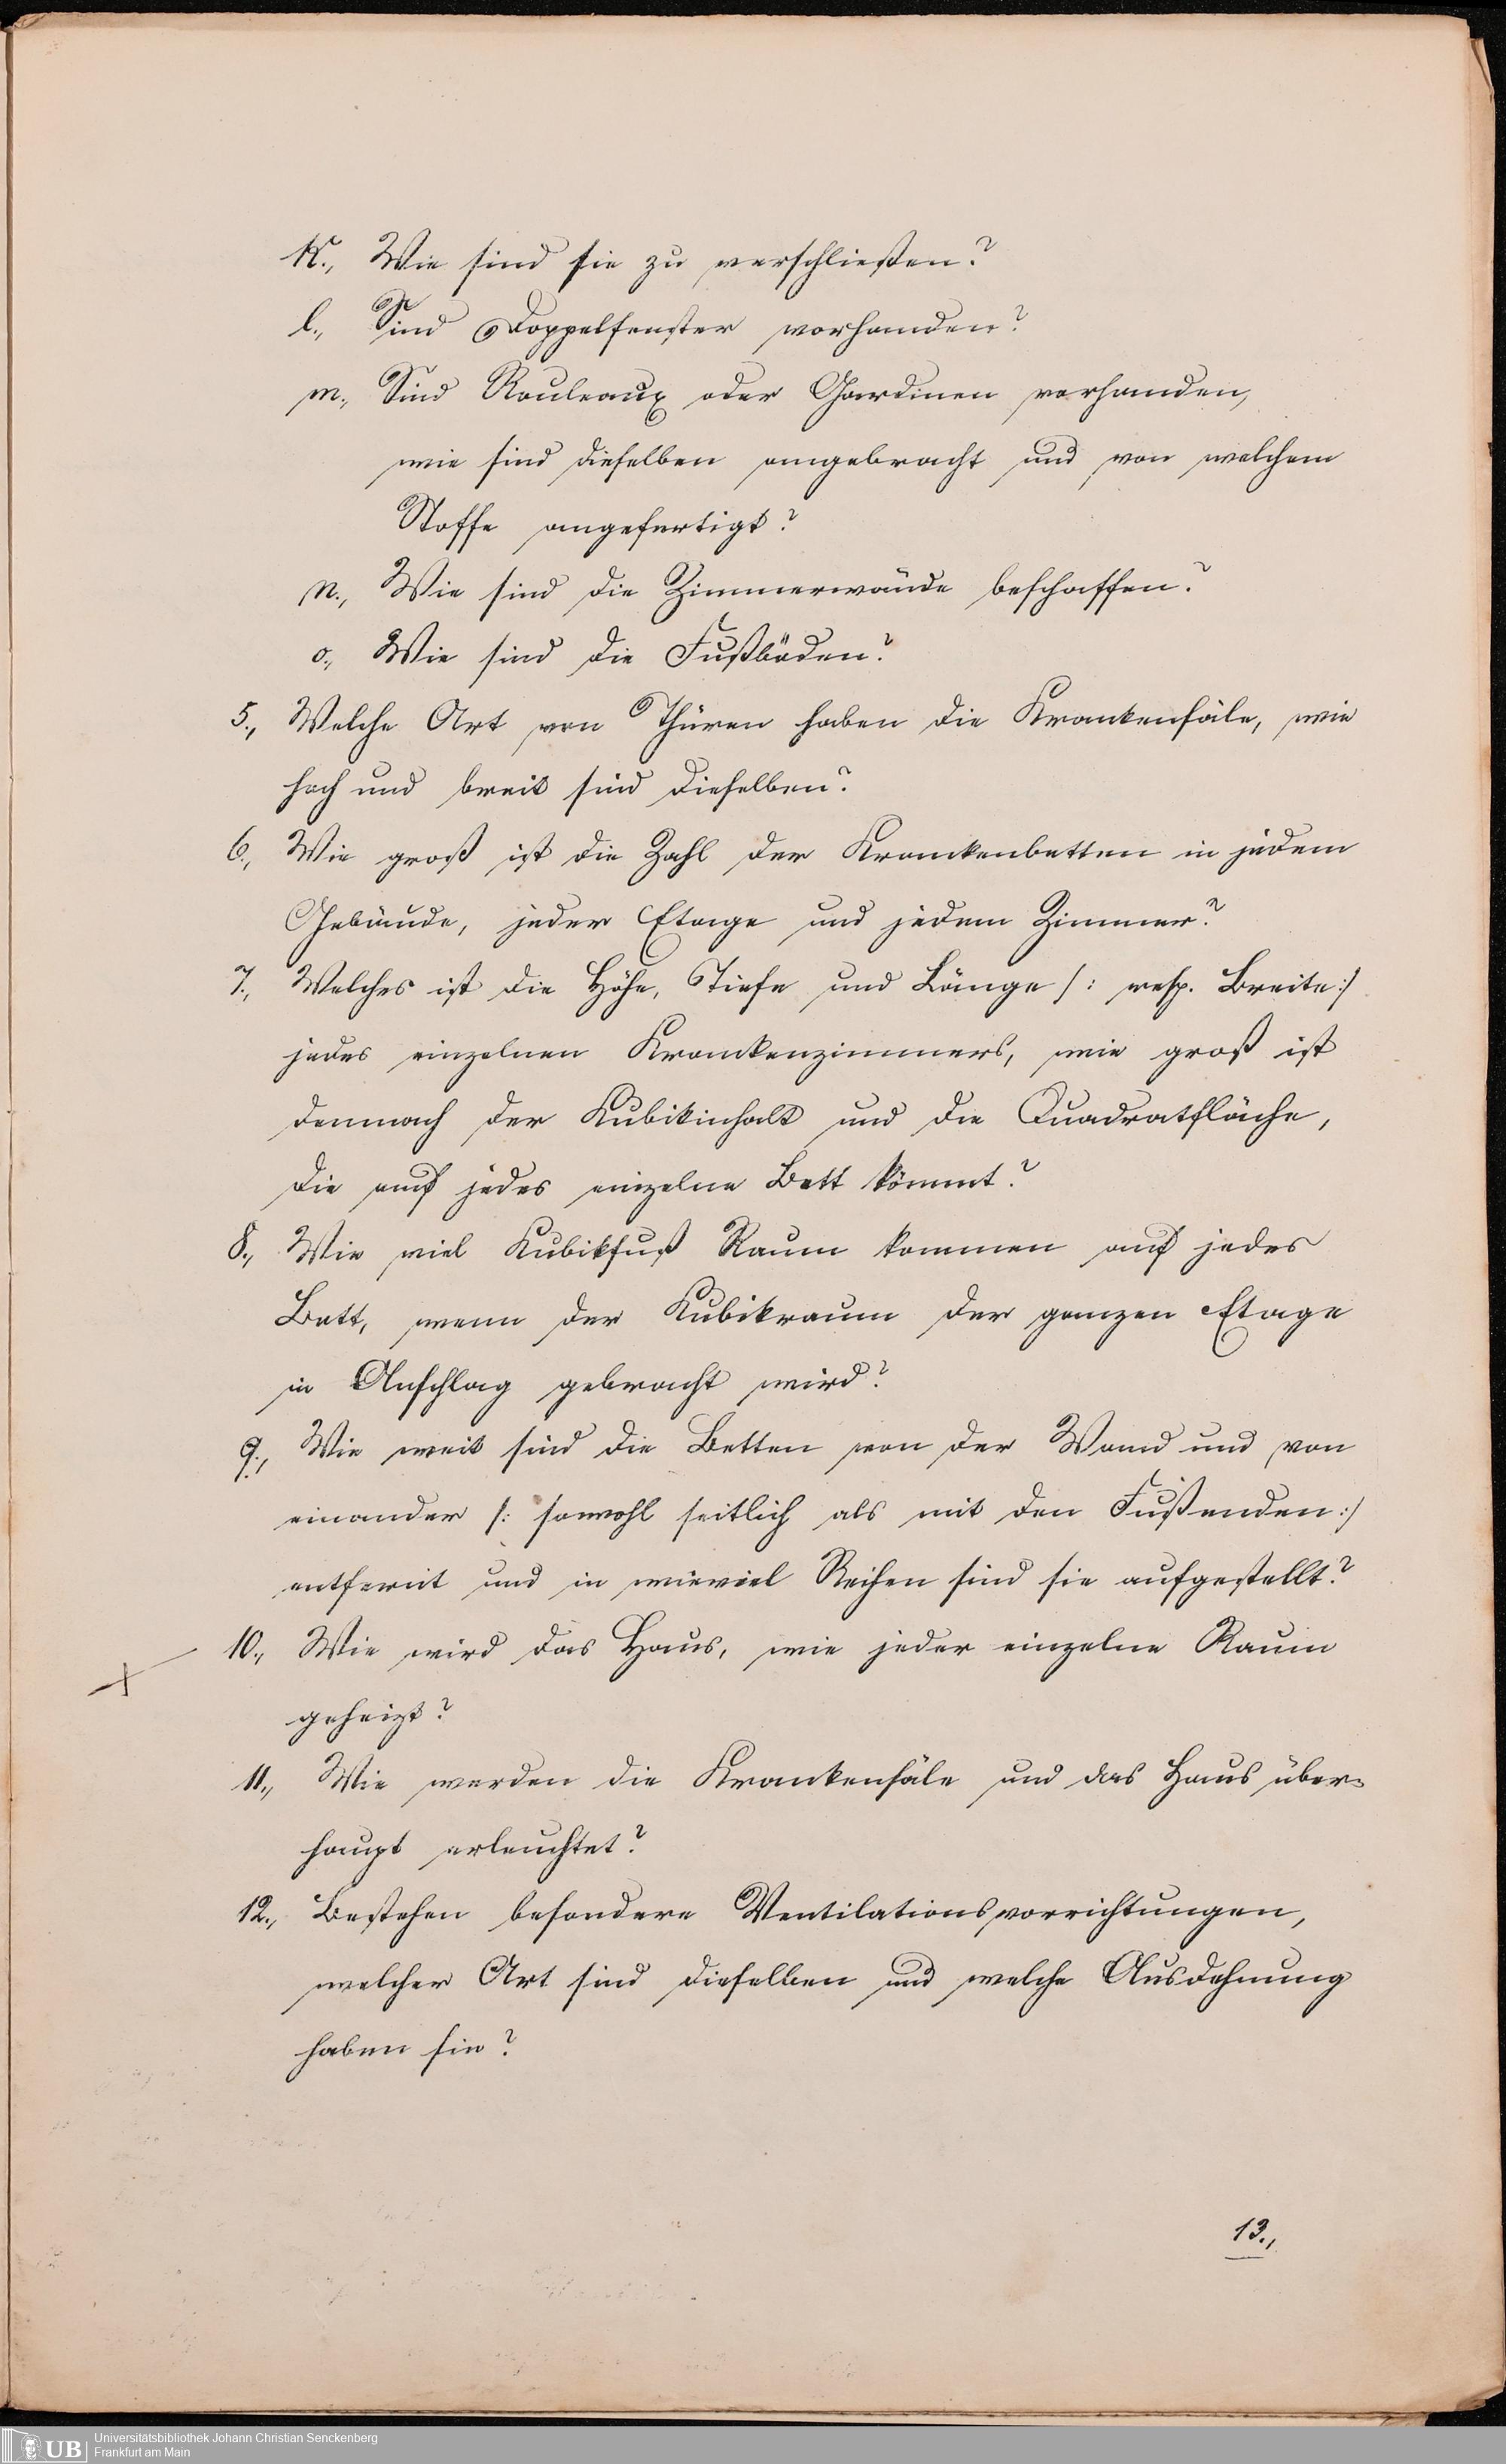 K., Wie sind sie zu verschließen?
l., Sind Doppelfenster vorhanden?
m., Sind Rouleaux oder Gardinen vorhanden,
wie sind dieselben angebracht und von welchem
Stoffe angefertigt?
n., Wie sind die Zimmerwände beschaffen?
o., Wie sind die Fußböden?
5., Welche Art von Thüren haben die Krankensäle, wie
hoch und breit sind dieselben?
6., Wie groß ist die Zahl der Krankenbetten in jedem
Gebäude, jeder Etage und jedem Zimmer?
7., Welches ist die Höhe, Tiefe und Länge /: resp. Breite :/
jedes einzelnen Krankenzimmers, wie groß ist
demnach der Kubikinhalt und die Quadratfläche,
die auf jedes einzelne Bett kömmt?
8., Wie viel Kubikfuß Raum kommen auf jedes
Bett, wenn der Kubikraum der ganzen Etage
in Anschlag gebracht wird?
9., Wie weit sind die Betten von der Wand und von
einander /: sowohl seitlich als mit den Fußenden :/
entfernt und in wieviel Reihen sind sie aufgestellt?
10., Wie wird das Haus, wie jeder einzelne Raum
geheizt?
11., Wie werden die Krankensäle und das Haus über-
haupt erleuchtet?
12., Bestehen besondere Ventilationsvorrichtungen,
welcher Art sind dieselben und welche Ausdehnung
haben sie?
13.,
UB Universitätsbibliothek Johann Christian Senckenberg
Frankfurt am Main